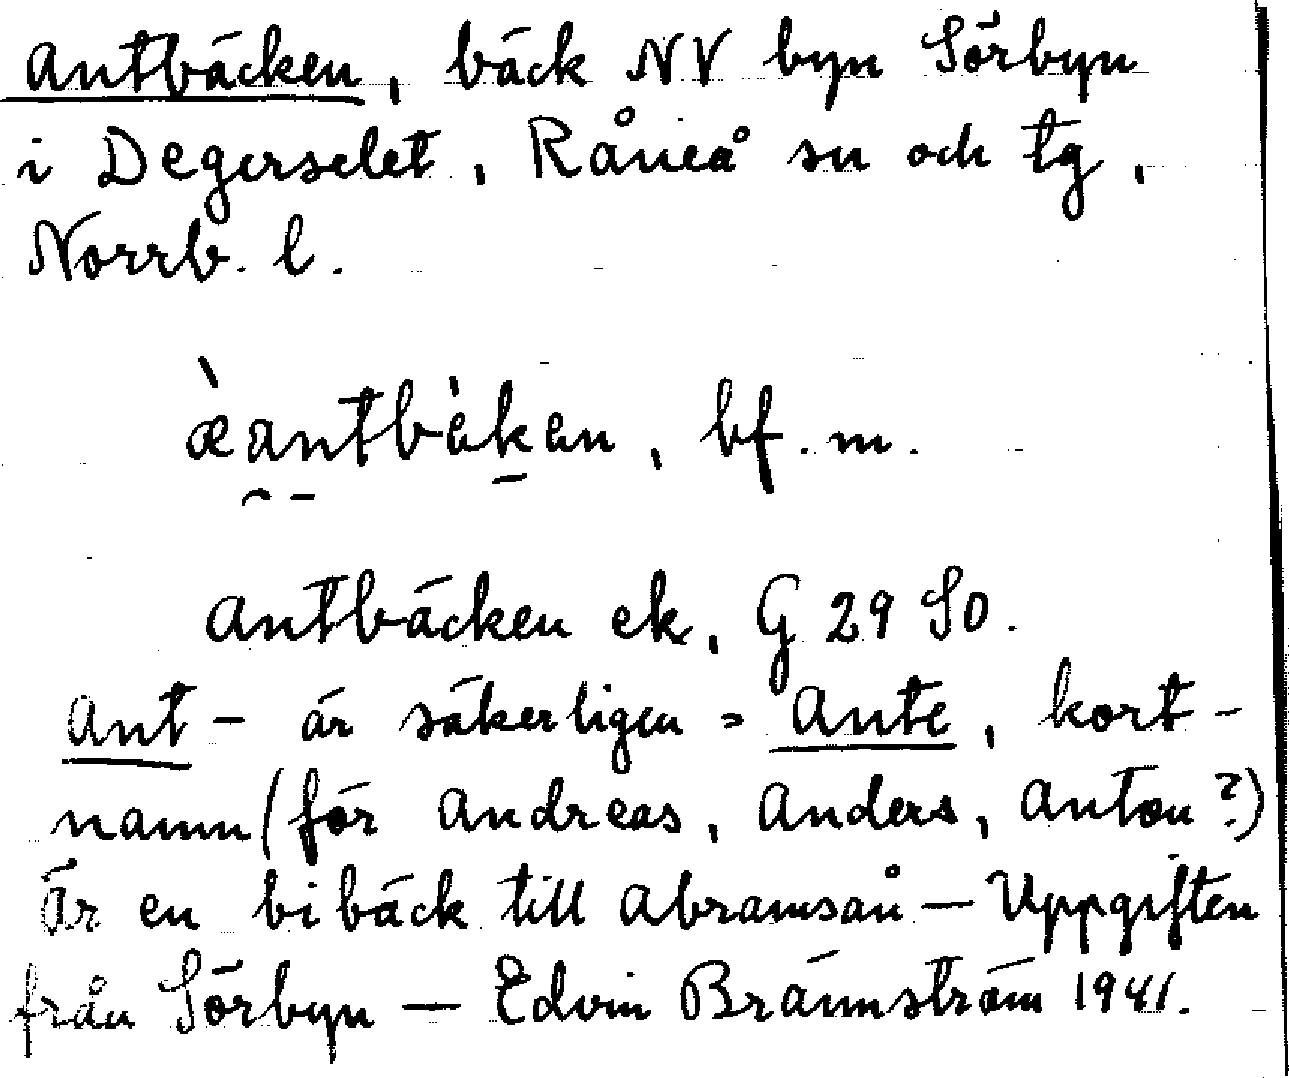 Antbäcken, bäck NV byn Sörbyn
i Degerselet, Råneå sn och tg,
Norrb. l.
æ̀antbὰkan, bf. m.
Antbäcken ek, G 29 SO.
Ant- är säkerligen = Ante, kort-
namn (för Andreas, Anders, Anton?)
Är en bibäck till Abramsån — Uppgiften
från Sörbyn — Edvin Brännström 1941.